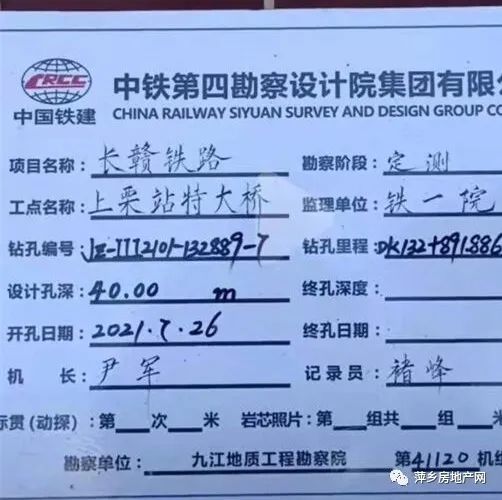 CRCC 中铁第四勘察设计院集团有限
中国铁建 CHINA RAILWAY SIYUAN SURVEY AND DESIGN GROUP CO
项目名称: 长赣铁路 勘察阶段: 定测
工点名称: 上栗站特大桥 监理单位: 铁一院
钻孔编号: JZ-III2101-132889-7 钻孔里程: DK132+891.886
设计孔深: 40.00 m 终孔深度:
开孔日期: 2021.7.26 终孔日期:
机 长: 尹军 记录员: 褚峰
标贯(动探): 第 次 米 岩芯照片: 第 组共 组 米
勘察单位: 九江地质工程勘察院 第41120机组
萍乡房地产网